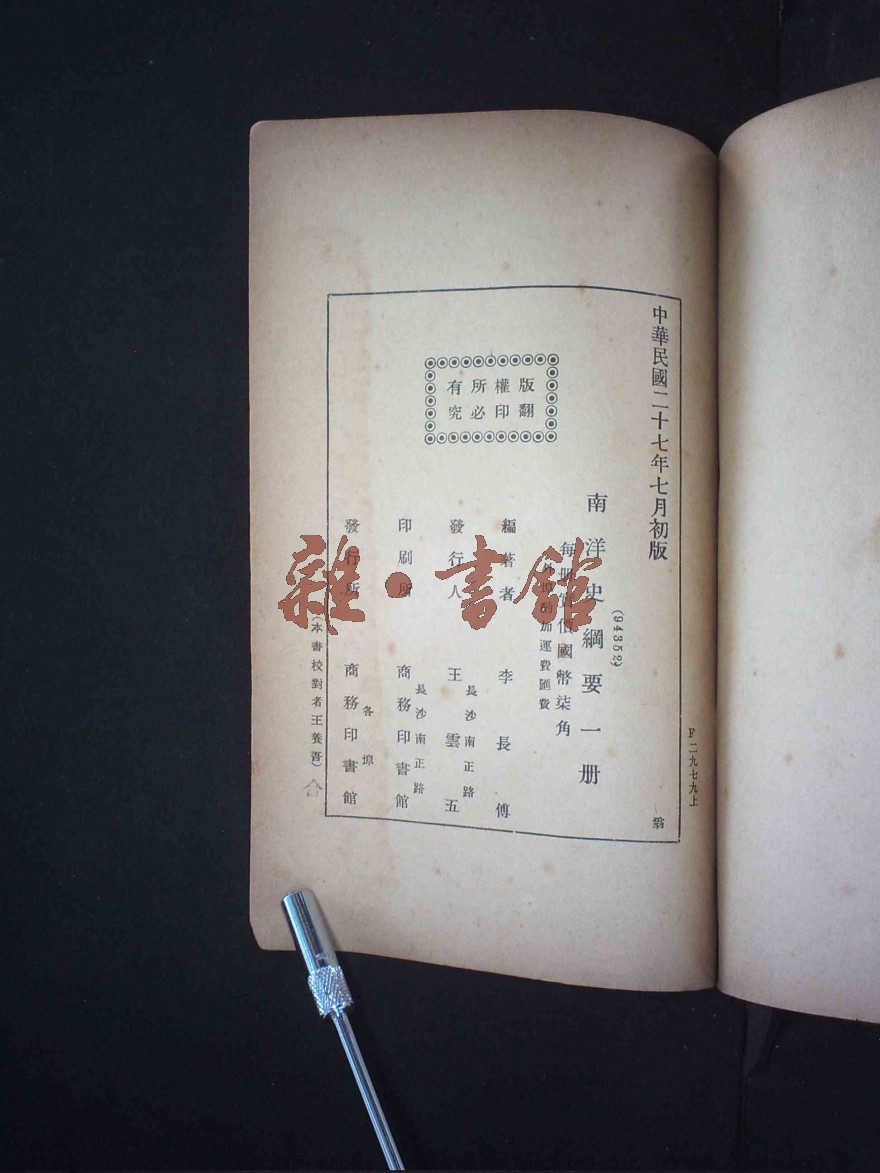 中華民國二十七年七月初版
翁
F二九七九上
(94352)
南洋史綱要一册
每册實價國幣柒角
外埠酌加運費匯費
版權所有
翻印必究
編著者 李長傅
發行人 王雲五
長沙南正路
印刷所 商務印書館
長沙南正路
發行所 商務印書館
各埠
(本書校對者王養吾)
合
雜·書館